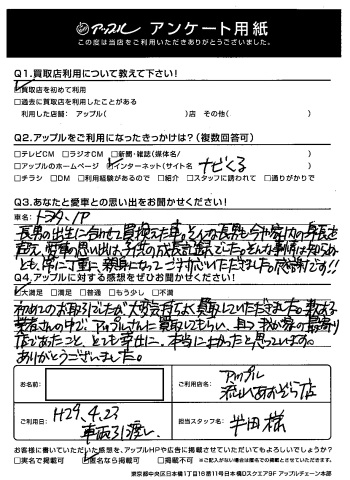 アップル アンケート用紙
この度は当店をご利用いただきありがとうございました。
Q1.買取店利用について教えて下さい!
☑買取店を初めて利用
□過去に買取店を利用したことがある
利用した店舗: アップル( )店 その他( )
Q2.アップルをご利用になったきっかけは?(複数回答可)
□テレビCM □ラジオCM □新聞・雑誌(媒体名/ )
□アップルのホームページ ☑インターネット(サイト名 ナビくる )
□チラシ □DM □利用経験があるので □紹介 □スタッフに誘われて □通りがかりで
Q3.あなたと愛車との思い出をお聞かせください!
車名: トヨタ
長男の出生に合わせて買い換えた車。そんな長男も今や家内の身長を
超え、
の思い出は、子供の成長
でした。そんな事情は知らね
ども、常に丁寧に、親身になってご対応いただきました。感謝です!!
Q4.アップルに対する感想をぜひお聞かせください!
☑大満足 □満足 □普通 □もう少し □不満
初めてのお取引でしたが、大変気持ちよく買取していただきました。数ある
業者さんの中で、アップルさんに買取してもらい、且つ我が家の最寄り
店であったこと、とても幸せに、本当によかったと思っています。
ありがとうございました。
お名前:
ご利用店名: アップル
流山あおぞら店
ご利用日: H29.4.23
車両引渡し
担当スタッフ名: 半田様
お客様に書いていただいた感想を、アップルHPや広告に掲載させていただいてもよろしいでしょうか?
□実名で掲載可 ☑匿名なら掲載可 □掲載不可 ※ご記入がない場合は匿名での掲載とさせていただきます。
東京都中央区日本橋1丁目16番11号日本橋Dスクエア9F アップルチェーン本部